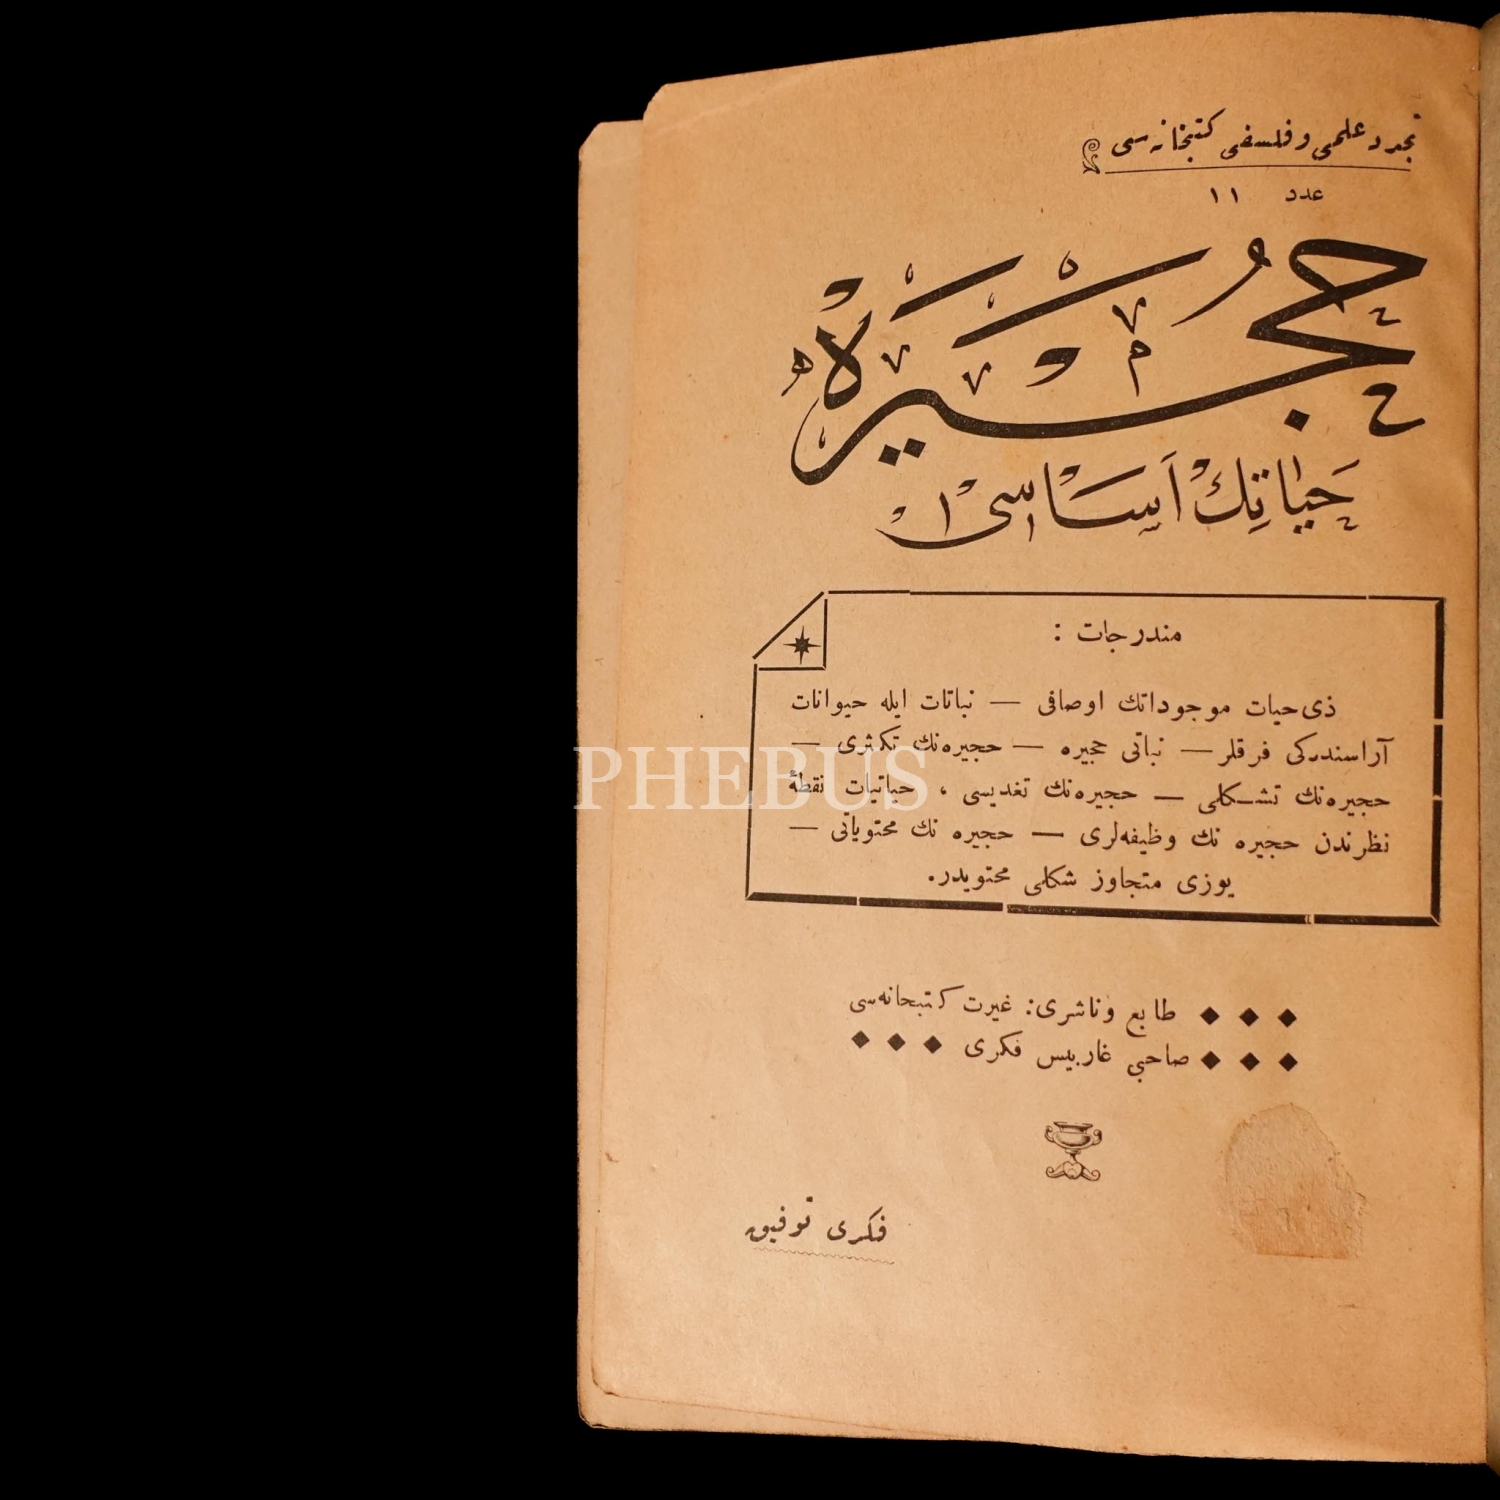 تجدد علمی و فلسفی كتبخانه‌سی
عدد ١١
حجیره
حیاتك اساسی
مندرجات :
ذی حیات موجوداتك اوصافی — نباتات ایله حیوانات
آراسنده‌كی فرقلر — نباتی حجیره — حجیره‌نك تكثری —
حجیره‌نك تشـكلی — حجیره‌نك تغدیسی ، حیاتیات نقطهٔ
نظرندن حجیره نك وظیفه‌لری — حجیره نك محتویاتی —
یوزی متجاوز شكلی محتویدر.
طابع وناشری: غیرت كتبخانه‌سی
صاحبی غاربیس فكری
فكری توفیق
PHEBUS